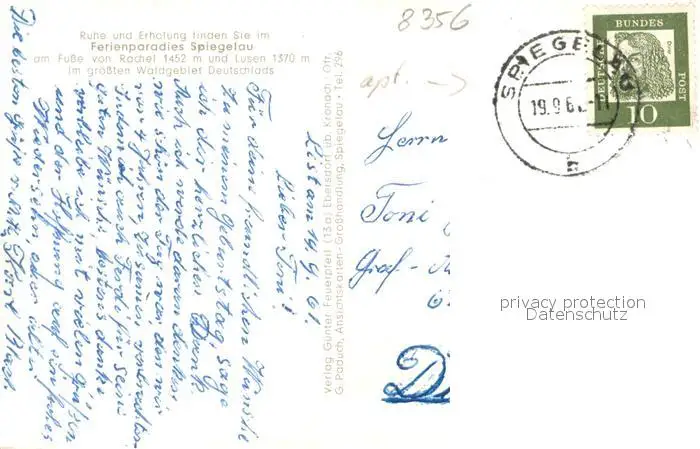 Ruhe und Erholung finden Sie im
Ferienparadies Spiegelau
am Fuße von Rachel 1452 m und Lusen 1370 m
im größten Waldgebiet Deutschlads
8356
apt. →
SPIEGELAU
19.9.61
DEUTSCHE
BUNDES
POST
10
Herrn
Toni
Graf-
privacy protection
Datenschutz
Verlag Günter Feuerpfeil (13a) Ebersdorf üb. Kronach · Ofr.
G. Paduch, Ansichtskarten-Großhandlung, Spiegelau · Tel. 296
19.9.61.
Lieber Toni!
Für deine freundlichen Wünsche
zu meinem Geburtstag, sage
ich dir herzlichen Dank.
Auch ich werde daran denken
wie schön der Tag war, den wir
vor 4 Jahren zusammen verbrachten
Indem ich auch für deine
guten Wünsche bestens danke
verbleibe ich mit vielen Grüßen
und der Hoffnung auf ein frohes
Wiedersehn, dein alter
Die besten Grüße